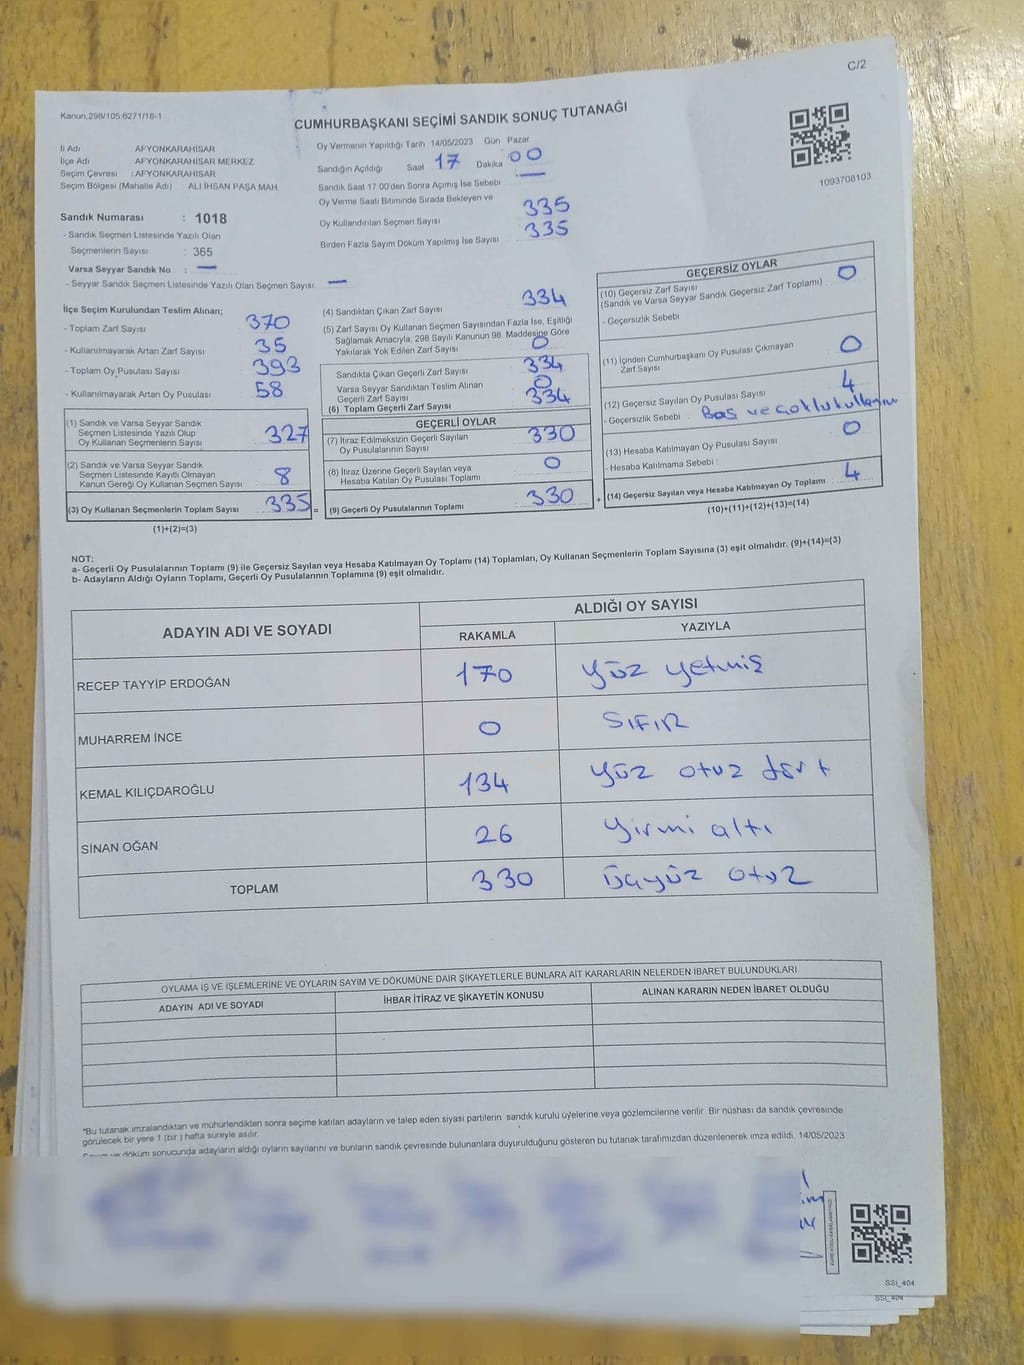 C/2
Kanun,298/105;6271/18-1
CUMHURBAŞKANI SEÇİMİ SANDIK SONUÇ TUTANAĞI
İl Adı AFYONKARAHİSAR
İlçe Adı AFYONKARAHİSAR MERKEZ
Seçim Çevresi : AFYONKARAHİSAR
Seçim Bölgesi (Mahalle Adı) : ALİ İHSAN PAŞA MAH.
Oy Vermenin Yapıldığı Tarih 14/05/2023 Gün Pazar
Sandığın Açıldığı Saat 17 Dakika 00
Sandık Saat 17:00'den Sonra Açılmış İse Sebebi —
Oy Verme Saati Bitiminde Sırada Bekleyen ve
Oy Kullandırılan Seçmen Sayısı 335
Birden Fazla Sayım Döküm Yapılmış İse Sayısı 335
1093708103
Sandık Numarası : 1018
- Sandık Seçmen Listesinde Yazılı Olan
Seçmenlerin Sayısı : 365
Varsa Seyyar Sandık No : —
- Seyyar Sandık Seçmen Listesinde Yazılı Olan Seçmen Sayısı: —
İlçe Seçim Kurulundan Teslim Alınan;
- Toplam Zarf Sayısı 370
- Kullanılmayarak Artan Zarf Sayısı 35
- Toplam Oy Pusulası Sayısı 393
- Kullanılmayarak Artan Oy Pusulası 58
(1) Sandık ve Varsa Seyyar Sandık
Seçmen Listesinde Yazılı Olup
Oy Kullanan Seçmenlerin Sayısı 327
(2) Sandık ve Varsa Seyyar Sandık
Seçmen Listesinde Kayıtlı Olmayan
Kanun Gereği Oy Kullanan Seçmen Sayısı 8
(3) Oy Kullanan Seçmenlerin Toplam Sayısı 335 =
(1)+(2)=(3)
(4) Sandıktan Çıkan Zarf Sayısı 334
(5) Zarf Sayısı Oy Kullanan Seçmen Sayısından Fazla İse, Eşitliği
Sağlamak Amacıyla, 298 Sayılı Kanunun 98. Maddesine Göre
Yakılarak Yok Edilen Zarf Sayısı 0
Sandıkta Çıkan Geçerli Zarf Sayısı 334
Varsa Seyyar Sandıktan Teslim Alınan
Geçerli Zarf Sayısı 0
(6) Toplam Geçerli Zarf Sayısı 334
GEÇERLİ OYLAR
(7) İtiraz Edilmeksizin Geçerli Sayılan
Oy Pusulalarının Sayısı 330
(8) İtiraz Üzerine Geçerli Sayılan veya
Hesaba Katılan Oy Pusulası Toplamı 0
(9) Geçerli Oy Pusulalarının Toplamı 330 +
GEÇERSİZ OYLAR
(10) Geçersiz Zarf Sayısı
(Sandık ve Varsa Seyyar Sandık Geçersiz Zarf Toplamı) : 0
- Geçersizlik Sebebi
(11) İçinden Cumhurbaşkanı Oy Pusulası Çıkmayan
Zarf Sayısı 0
(12) Geçersiz Sayılan Oy Pusulası Sayısı 4
- Geçersizlik Sebebi : Boş ve
(13) Hesaba Katılmayan Oy Pusulası Sayısı 0
- Hesaba Katılmama Sebebi :
(14) Geçersiz Sayılan veya Hesaba Katılmayan Oy Toplamı 4
(10)+(11)+(12)+(13)=(14)
NOT:
a- Geçerli Oy Pusulalarının Toplamı (9) ile Geçersiz Sayılan veya Hesaba Katılmayan Oy Toplamı (14) Toplamları, Oy Kullanan Seçmenlerin Toplam Sayısına (3) eşit olmalıdır. (9)+(14)=(3)
b- Adayların Aldığı Oyların Toplamı, Geçerli Oy Pusulalarının Toplamına (9) eşit olmalıdır.
ADAYIN ADI VE SOYADI ALDIĞI OY SAYISI
RAKAMLA YAZIYLA
RECEP TAYYİP ERDOĞAN 170 Yüz yetmiş
MUHARREM İNCE 0 SIFIR
KEMAL KILIÇDAROĞLU 134 Yüz otuz dört
SİNAN OĞAN 26 Yirmi altı
TOPLAM 330 Üçyüz otuz
OYLAMA İŞ VE İŞLEMLERİNE VE OYLARIN SAYIM VE DÖKÜMÜNE DAİR ŞİKAYETLERLE BUNLARA AİT KARARLARIN NELERDEN İBARET BULUNDUKLARI
ADAYIN ADI VE SOYADI İHBAR İTİRAZ VE ŞİKAYETİN KONUSU ALINAN KARARIN NEDEN İBARET OLDUĞU
*Bu tutanak imzalandıktan ve mühürlendikten sonra seçime katılan adayların ve talep eden siyasi partilerin sandık kurulu üyelerine veya gözlemcilerine verilir. Bir nüshası da sandık çevresinde
görülecek bir yere 1 (bir) hafta süreyle asılır.
Sayım ve döküm sonucunda adayların aldığı oyların sayılarını ve bunların sandık çevresinde bulunanlara duyurulduğunu gösteren bu tutanak tarafımızdan düzenlenerek imza edildi. 14/05/2023
SSİ_404
SSİ_404